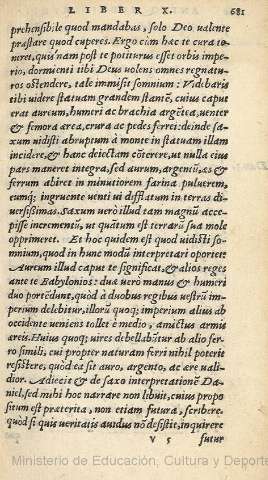 LIBER X. 681
prehensibile quod mandabas, solo Deo ualente
præstare quod cuperes. Ergo cùm hæc te cura te
neret, quis nam post te potiturus esset orbis impe
rio, dormienti tibi Deus uolens omnes regnatu
ros ostendere, tale immisit somnium: Videbaris
tibi uidere statuam grandem stantẽ, cuius caput
erat aureum, humeri ac brachia argẽtea, uenter
& femora ærea, crura ac pedes ferrei: deinde sa-
xum uidisti abruptum à monte in statuam illam
incidere, & hanc deiectam cõterere, ut nulla eius
pars maneret integra, sed aurum, argentũ, æs &
ferrum abiret in minutiorem farina puluerem,
eumq; ingruente uenti ui diffla tum in terras di
uersissimas. Saxum uerò illud tam magnũ acce-
pisse incrementũ, ut quãtum est terrarũ sua mole
opprimeret. Et hoc quidem est quod uidisti so-
mnium, quod in hunc modũ interpretari oportet:
Aureum illud caput te significat, & alios reges
ante te Babylonios: duæ uerò manus & humeri
duo portẽdunt, quòd à duobus regibus uestrũ im-
perium delebitur, illorũ quoq; imperium alius ab
occidente ueniens tollet è medio, amictus armis
æreis. Huius quoq; uires debellabũtur ab alio fer-
ro simili, cui propter naturam ferri nihil poterit
resistere, quòd ea sit auro, argento, ac ære uali-
dior. Adiecit & de saxo interpretationẽ Da-
niel, sed mihi hoc narrare non libuit, cuius propo
situm est præterita, non etiam futura, scribere.
quòd si quis ueritatis auidus nõ desistit, inquirere
V 5 futur
Ministerio de Educación, Cultura y Deporte